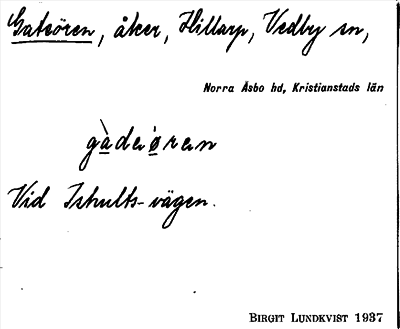 Gateören, åker, Hillarp, Vedby sn,
Norra Åsbo hd, Kristianstads län
gàdeiǿrɐn
Vid Ishults-vägen.
BIRGIT LUNDKVIST 1937